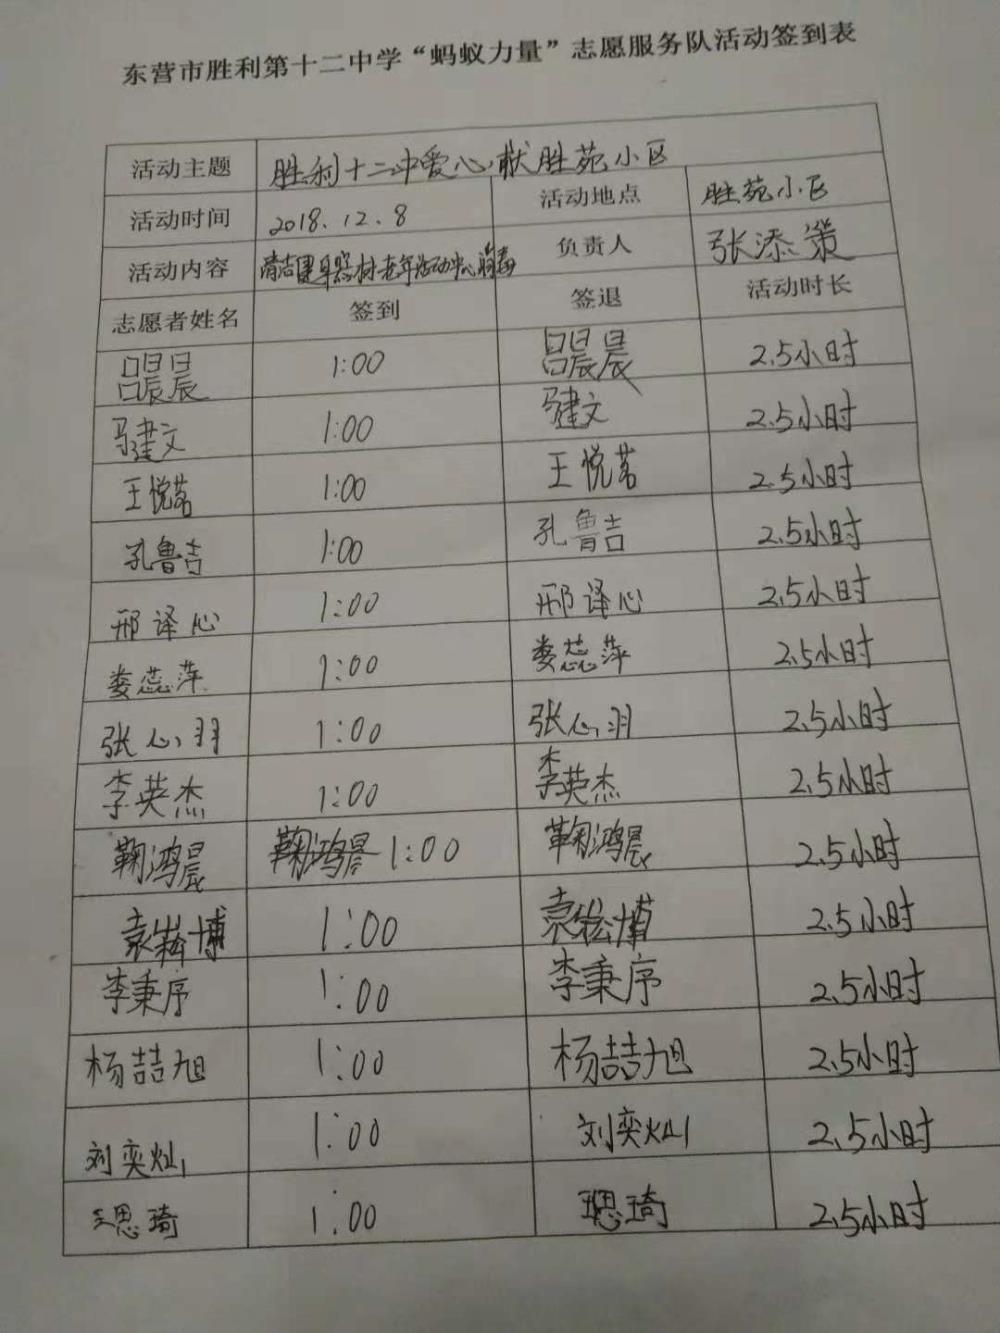 东营市胜利第十二中学“蚂蚁力量”志愿服务队活动签到表
活动主题 胜利十二中爱心献胜苑小区
活动时间 2018.12.8 活动地点 胜苑小区
活动内容 清洁健身器材老年活动中心消毒 负责人 张添策
志愿者姓名 签到 签退 活动时长
吕晨晨 1:00 吕晨晨 2.5小时
马建文 1:00 马建文 2.5小时
王悦茗 1:00 王悦茗 2.5小时
孔鲁吉 1:00 孔鲁吉 2.5小时
邢译心 1:00 邢译心 2.5小时
娄蕊萍 1:00 娄蕊萍 2.5小时
张心羽 1:00 张心羽 2.5小时
李英杰 1:00 李英杰 2.5小时
鞠鸿晨 鞠鸿晨 1:00 鞠鸿晨 2.5小时
袁 博 1:00 袁 博 2.5小时
李秉序 1:00 李秉序 2.5小时
杨喆旭 1:00 杨喆旭 2.5小时
刘奕灿 1:00 刘奕灿 2.5小时
王思琦 1:00 王思琦 2.5小时